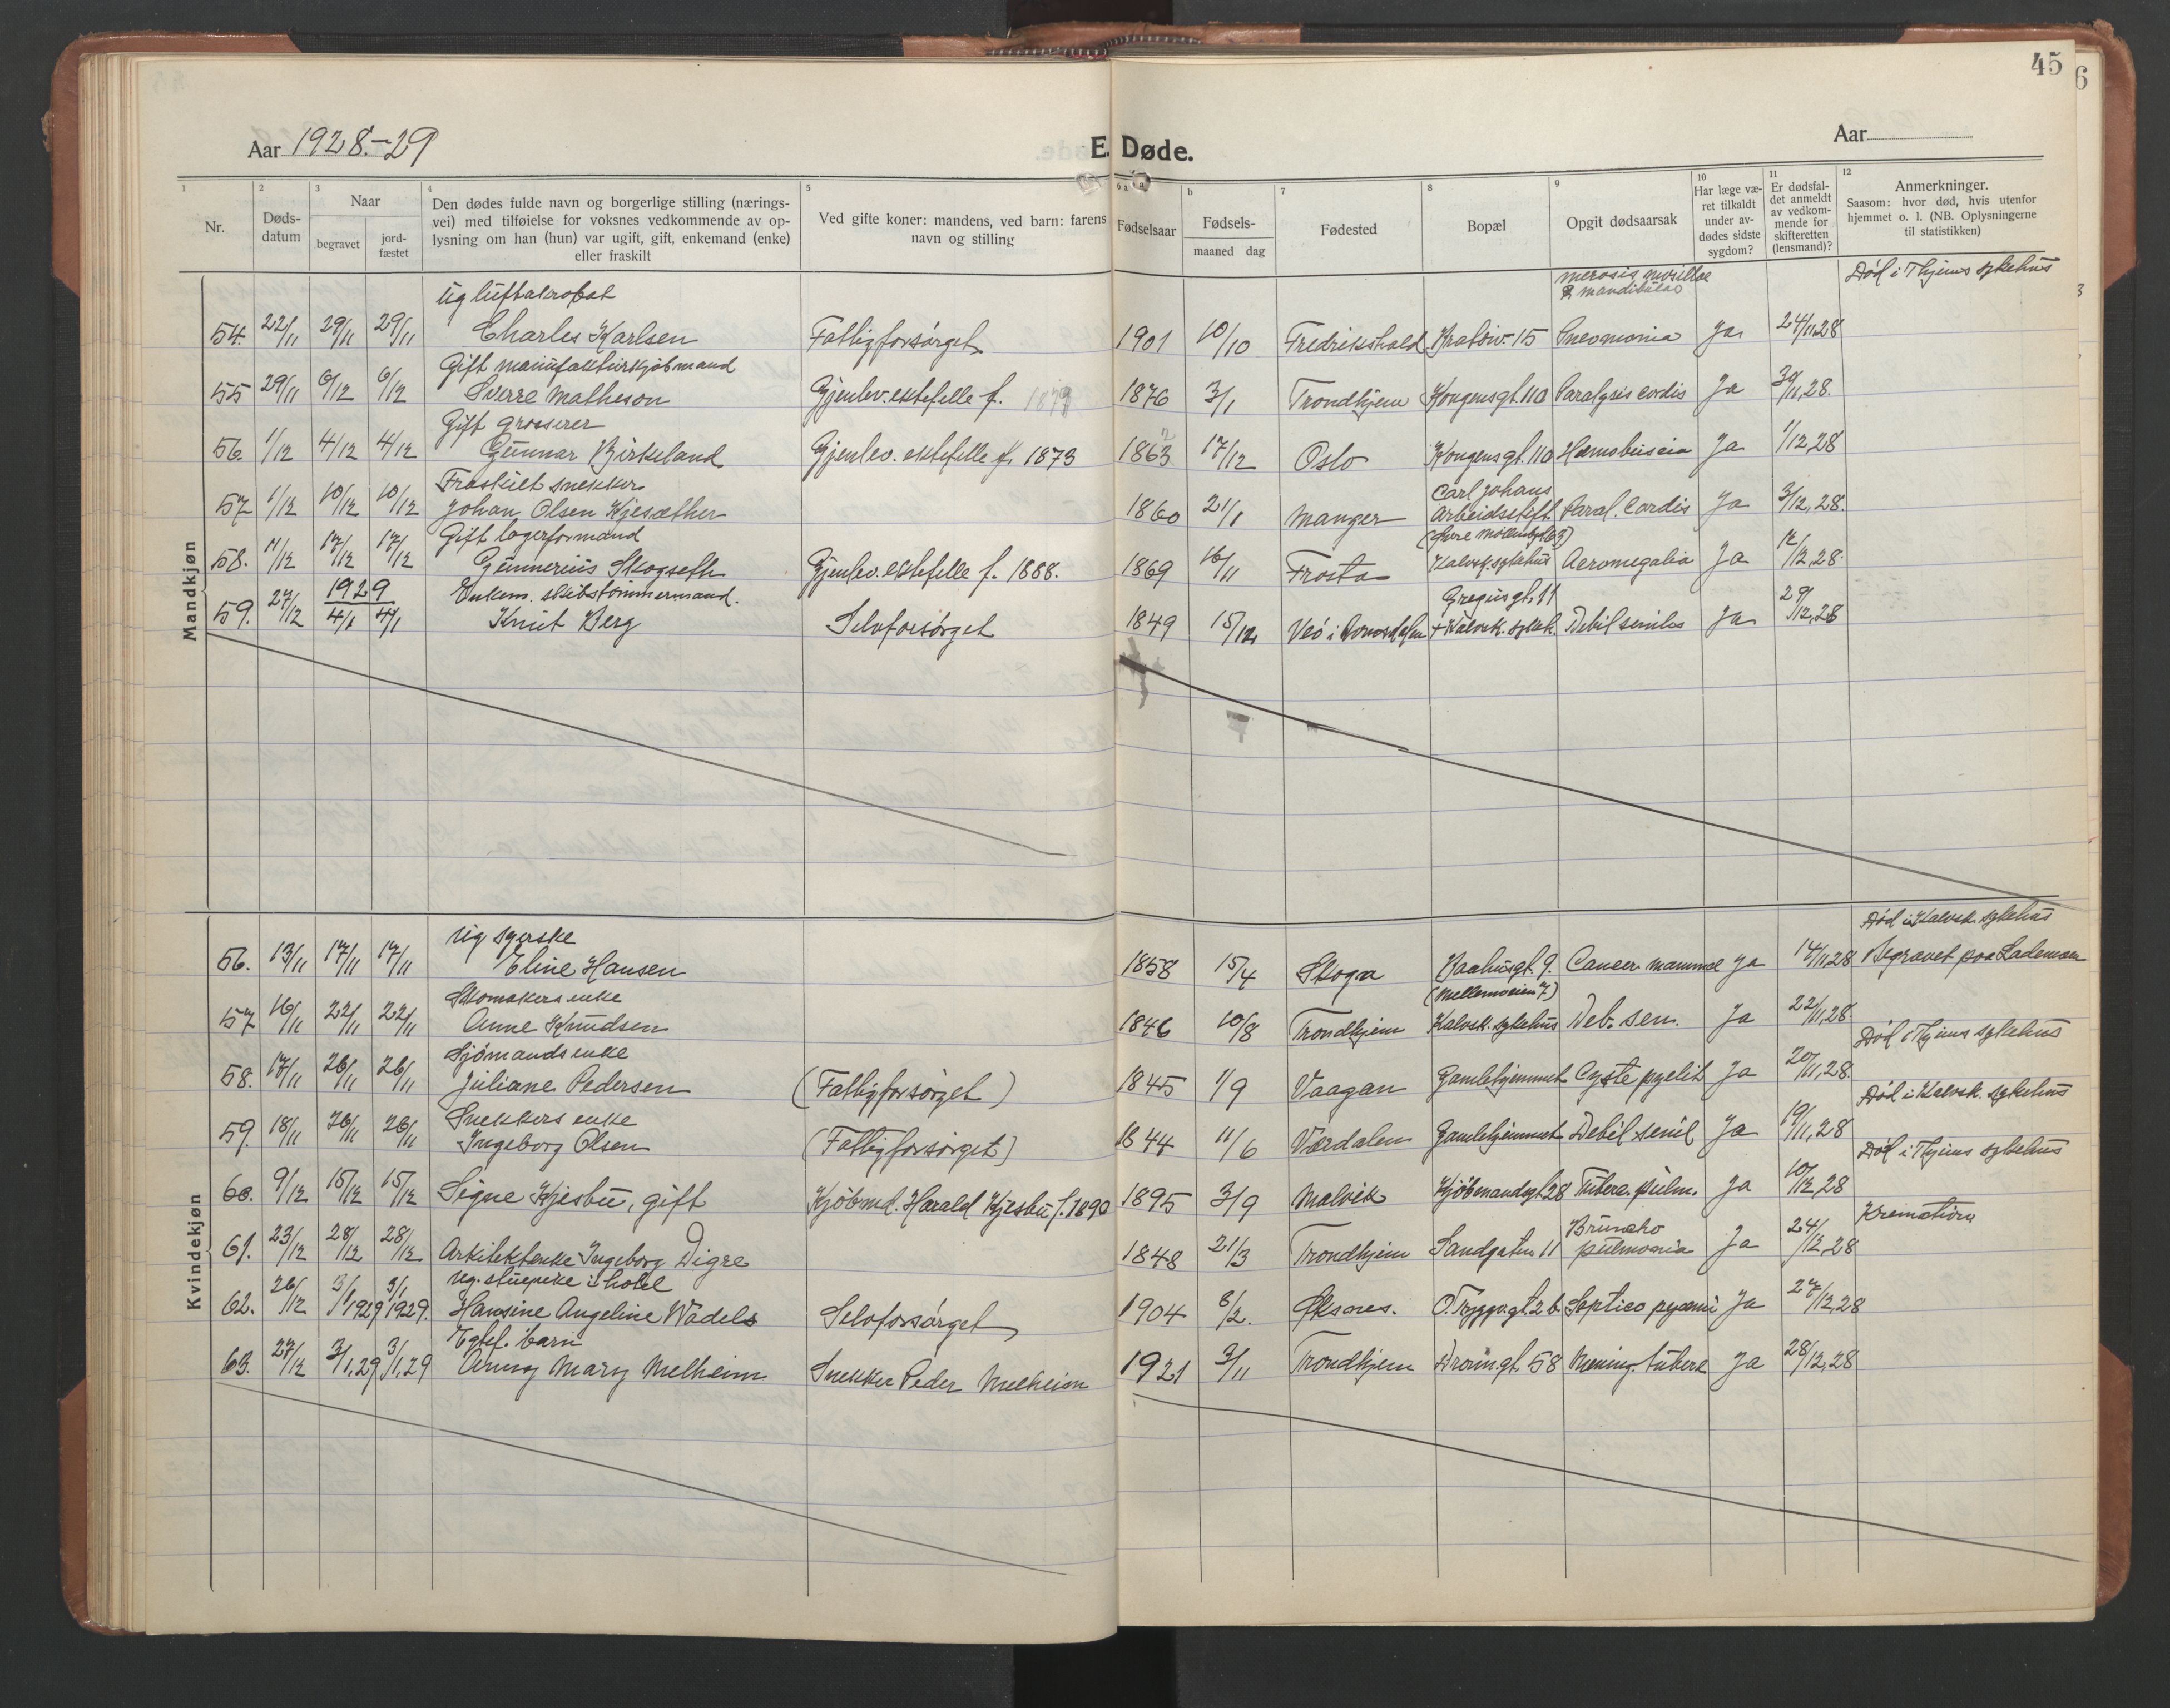 45
6
Aar 1928.-29
E. Døde.
Aar
1 Nr.
2 Døds-datum
3 Naar
begravet
jord-fæstet
4 Den dødes fulde navn og borgerlige stilling (nærings-
vei) med tilføielse for voksnes vedkommende av op-
lysning om han (hun) var ugift, gift, enkemand (enke)
eller fraskilt
5 Ved gifte koner: mandens, ved barn: farens
navn og stilling
6 a Fødselsaar
b Fødsels-
maaned dag
7 Fødested
8 Bopæl
9 Opgit dødsaarsak
10 Har læge væ-
ret tilkaldt
under av-
dødes sidste
sygdom?
11 Er dødsfal-
det anmeldt
av vedkom-
mende for
skifteretten
(lensmand)?
12 Anmerkninger.
Saasom: hvor død, hvis utenfor
hjemmet o. l. (NB. Oplysningerne
til statistikken)
Mandkjøn
ug luftakrobat
mandibulae
Død i Thjems sykehus
54. 22/11 29/11 29/11 Charles Karlsen Fattigforsørget 1901 10/10 Fredrikshald 15 Pneomonia Ja 24/11,28
Gift manufakturkjøbmand
55 29/11 6/12 6/12 Sverre Matheson Gjenlev. ektefelle f. 1876 3/1 Trondhjem Kongensgt. 110 Paralysis cordis Ja 30/11,28.
Gift grosserer
56. 1/12 4/12 4/12 Gunnar Birkeland Gjenlev. ektefelle f. 1873 1863 17/12 Oslo Kongensgt. 110 Ja 1/12,28
Fraskilt snekker
Carl Johans
57 1/12 10/12 10/12 Johan Olsen Kjesæther 1860 21/1 Manger Arbeidsstift. Paral. Cordis Ja 3/12,28.
Gift lagerformand
58. 11/12 17/12 17/12 Gunnerius Skogseth Gjenlev. ektefelle f. 1888. 1869 16/11 Frosta Kalvsk. sykehus Acromegalia Ja 12/12,28
1929
Enkem. skibstømmermand.
Gregusgt. 11
59. 27/12 4/1 4/1 Knut Berg Selvforsørget 1849 15/12 Veö i Romsdalen + Kalvsk. sykeh. Debil senilis Ja 29/12,28
Kvindekjøn
ug syerske
Død i Kalvsk. sykehus
56. 13/11 17/11 17/11 Eline Hansen 1858 15/4 Skogn Baahusgt. 9. Cancer mammae Ja 14/11,28 Begravet paa Lademoen
Skomakers enke
(Mellemveien 7)
57 16/11 22/11 22/11 Anne Knudsen 1846 10/8 Trondhjem Kalvsk. sykehus Deb. sen. Ja 22/11,28
Sjømands enke
Død i Thjems sykehus
58. 17/11 26/11 26/11 Juliane Pedersen (Fattigforsørget) 1845 1/9 Vaagan Gamlehjemmet Cystepyelit Ja 20/11,28.
Snekkers enke
Død i Kalvsk. sykehus
59. 18/11 26/11 26/11 Ingeborg Olsen (Fattigforsørget) 1844 11/6 Værdalen Gamlehjemmet Debil. senil Ja 19/11,28
Død i Thjems sykehus
60. 9/12 15/12 15/12 Signe Kjesbu, gift Kjøbmd. Harald Kjesbu f. 1890 1895 3/9 Malvik Kjøbmandsgt. 28 Tuberc. pulm. Ja 10/12,28
Kremation
61. 23/12 28/12 28/12 Arkitektenke Ingeborg Digre 1848 21/3 Trondhjem Sandgaten 11 pulmonia Ja 24/12,28
ug. stuepike i hotel
62. 26/12 3/1 1929 3/1 1929. Hansine Angeline Wadels Selvforsørget 1904 8/2. Øksnes. O. Trygvv.gt. 2b. Septico pyæmi Ja 27/12,28
Egtef. barn
63. 27/12 3/1,29 3/1,29 Anny Mary Melheim Snekker Peder Melheim 1921 3/11 Trondhjem Dronn.gt. 58 Mening. tuberc Ja 28/12,28